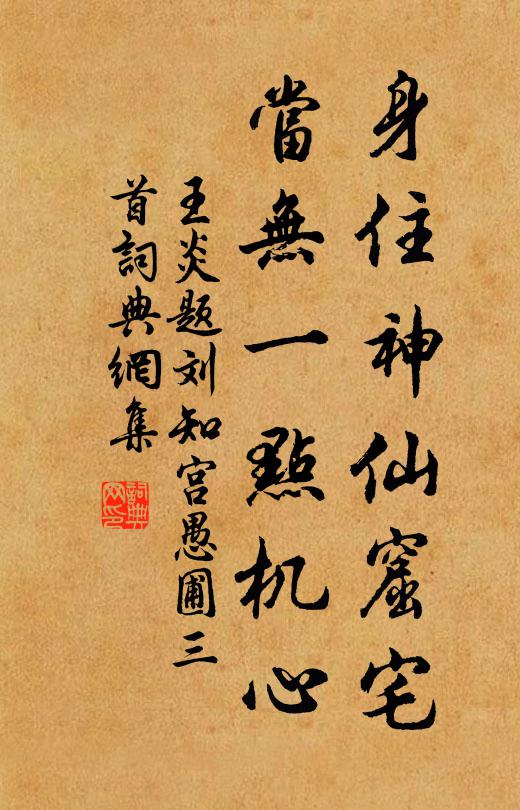 身住神仙窟宅
當無一點机心
王炎题刘知宫愚圃三
首詞典網集
詞典
网印